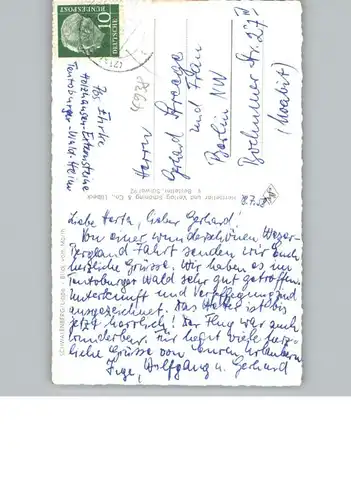 10
DEUTSCHE
BUNDESPOST
Abs. Ehrke
Holzhausen-Externsteine
Teutoburger-Wald-Heim
4938
Herrn
Gerhard
und Frau
Berlin NW
Bochumer Str. 27
(Moabit)
Hersteller und Verlag Schöning & Co., Lübeck
SCHWALENBERG-Lippe - Blick vom
Liebe Herta, lieber Gerhard!
Von einer wunderschönen Weser-
Bergland Fahrt senden wir Euch
herzliche Grüsse. Wir haben es im
Teutoburger Wald sehr gut getroffen.
Unterkunft und Verpflegung sind
ausgezeichnet. Das Wetter ist bis
jetzt herrlich! Der Flug war auch
wunderbar. Für heute viele herz-
liche Grüsse von Euren Urlaubern
Inge, Wolfgang u. Gerhard